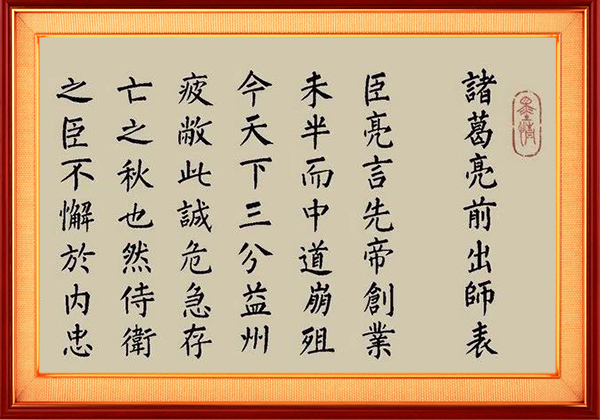 諸葛亮前出師表
臣亮言先帝創業
未半而中道崩殂
今天下三分益州
疲敝此誠危急存
亡之秋也然侍衛
之臣不懈於內忠